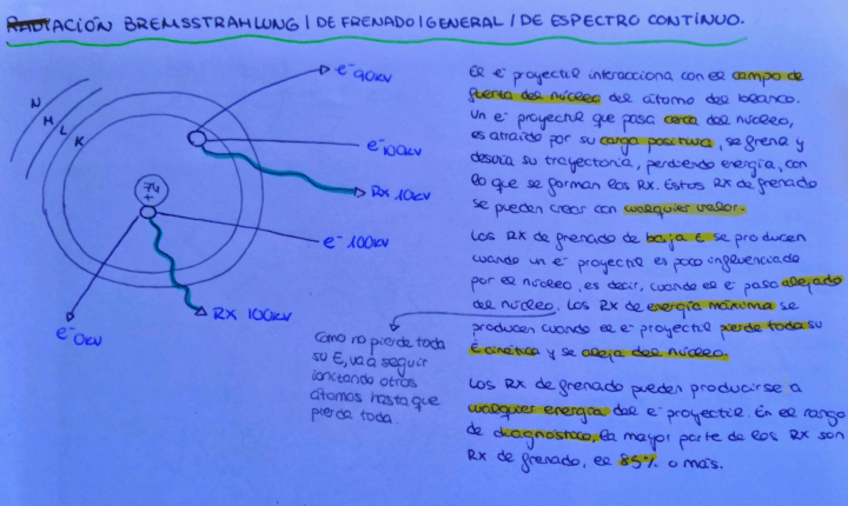 RADIACIÓN BREMSSTRAHLUNG / DE FRENADO / GENERAL / DE ESPECTRO CONTINUO.
N
M
L
K
e⁻90KV
e⁻100KV
RX 10KV
74
+
e⁻100KV
RX 100KV
e⁻0KV
El e⁻ proyectil interacciona con el campo de
fuerza del núcleo del átomo del blanco.
Un e⁻ proyectil que pasa cerca del núcleo,
es atraído por su carga positiva, se frena y
desvía su trayectoria, perdiendo energía, con
lo que se forman los RX. Estos RX de frenado
se pueden crear con cualquier valor.
Los RX de frenado de baja E se producen
cuando un e⁻ proyectil es poco influenciado
por el núcleo, es decir, cuando el e⁻ pasa alejado
del núcleo. Los RX de energía máxima se
producen cuando el e⁻ proyectil pierde toda su
E cinética y se aleja del núcleo.
Como no pierde toda
su E, va a seguir
ionizando otros
átomos hasta que
pierda toda.
Los RX de frenado pueden producirse a
cualquier energía del e⁻ proyectil. En el rango
de diagnóstico, la mayor parte de los RX son
RX de frenado, el 85% o más.